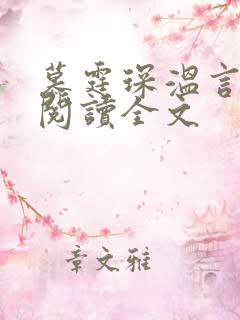 慕霆琛溫言
閱讀全文
章文雅